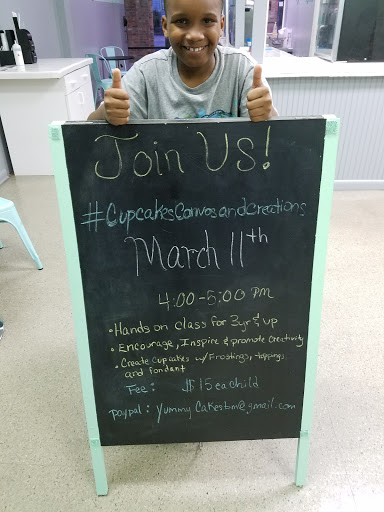 Join Us!
#CupcakesCanvasandCreations
March 11th
4:00-5:00 pm
• Hands on class for 3yr & up
• Encourage, Inspire & promote Creativity
• Create Cupcakes w/ Frostings, toppings,
and fondant
Fee: $15 each child
paypal: yummycakesbm@gmail.com